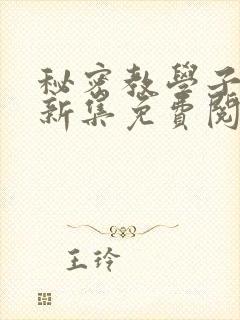 秘密教學子
新集免費閱
王玲